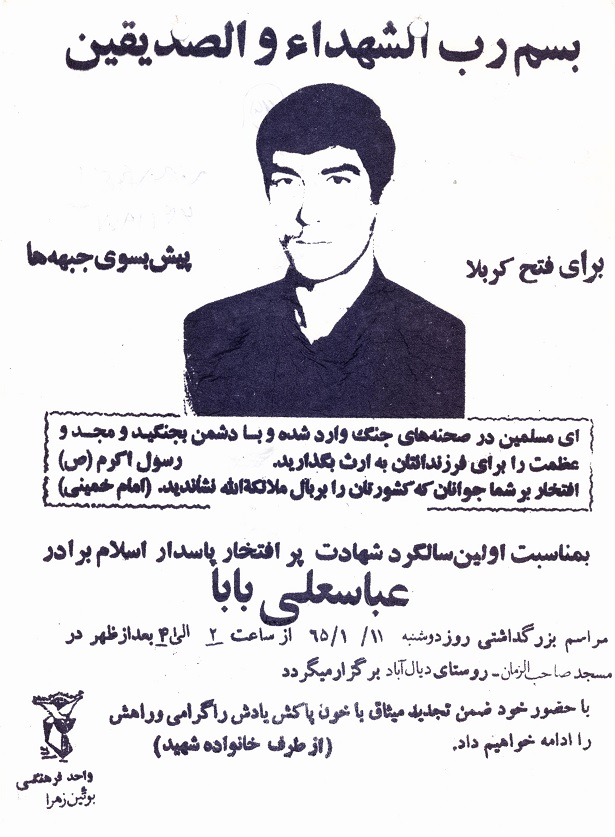 بسم رب الشهداء و الصدیقین
برای فتح کربلا
پیش بسوی جبهه‌ها
ای مسلمین در صحنه‌های جنگ وارد شده و با دشمن بجنگید و مجد و
عظمت را برای فرزندانتان به ارث بگذارید. رسول اکرم (ص)
افتخار بر شما جوانان که کشورتان را بر بال ملائکةالله نشاندید. (امام خمینی)
بمناسبت اولین سالگرد شهادت پر افتخار پاسدار اسلام برادر
عباسعلی بابا
مراسم بزرگداشتی روز دوشنبه ۱۱ /۱ /۶۵ از ساعت ۲ الی ۴ بعدازظهر در
مسجد صاحب الزمان - روستای دیال آباد برگزار میگردد
با حضور خود ضمن تجدید میثاق با خون پاکش یادش را گرامی و راهش
را ادامه خواهیم داد. (از طرف خانواده شهید)
واحد فرهنگی
بوئین زهرا